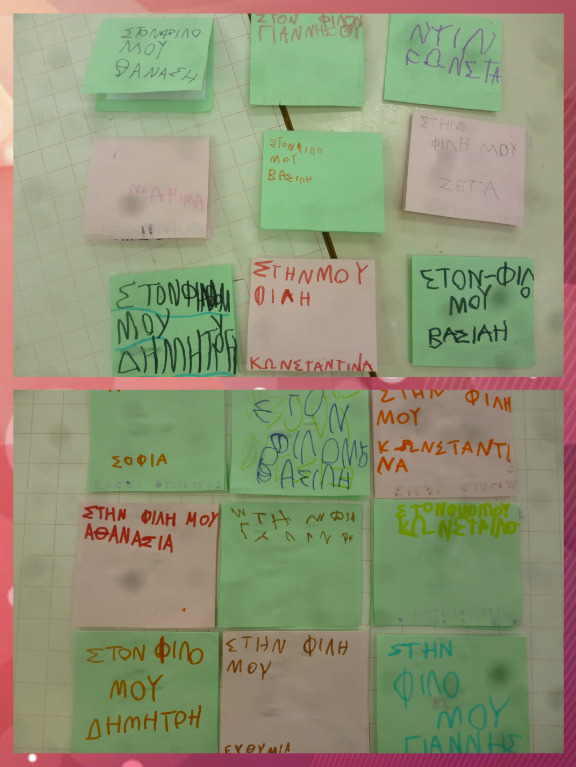 ΣΤΟΝ ΦΙΛΟ
ΜΟΥ
ΘΑΝΑΣΗ
ΣΤΟΝ ΦΙΛΟ
ΓΙΑΝΝΗΣ ΟΥ
ΝΤΙΝ
ΚΩΝΣΤΑ
ΜΑΡΙΝΑ
ΣΤΟΝ ΦΙΛΟ
ΜΟΥ
ΒΑΣΙΛΗ
ΣΤΗΝ
ΦΙΛΗ ΜΟΥ
ΖΕΤΑ
ΣΤΟΝ ΦΙΛΟ
ΜΟΥ
ΔΗΜΗΤΡΗ
ΣΤΗΝ ΜΟΥ
ΦΙΛΗ
ΚΩΝΣΤΑΝΤΙΝΑ
ΣΤΟΝ-ΦΙΛΟ
ΜΟΥ
ΒΑΣΙΛΗ
ΣΟΦΙΑ
ΣΤΟΝ
ΦΙΛΟ ΜΟΥ
ΒΑΣΙΛΗ
ΣΤΗΝ ΦΙΛΗ
ΜΟΥ
ΚΩΝΣΤΑΝΤΙ
ΝΑ
ΣΤΗΝ ΦΙΛΗ ΜΟΥ
ΑΘΑΝΑΣΙΑ
ΣΤΟΝ ΦΙΛΟ ΜΟΥ
ΚΩΝΣΤΑΙΝΟ
ΣΤΟΝ ΦΙΛΟ
ΜΟΥ
ΔΗΜΗΤΡΗ
ΣΤΗΝ ΦΙΛΗ
ΜΟΥ
ΕΥΘΥΜΙΑ
ΣΤΗΝ
ΦΙΛΟ
ΜΟΥ
ΓΙΑΝΝΗΣ